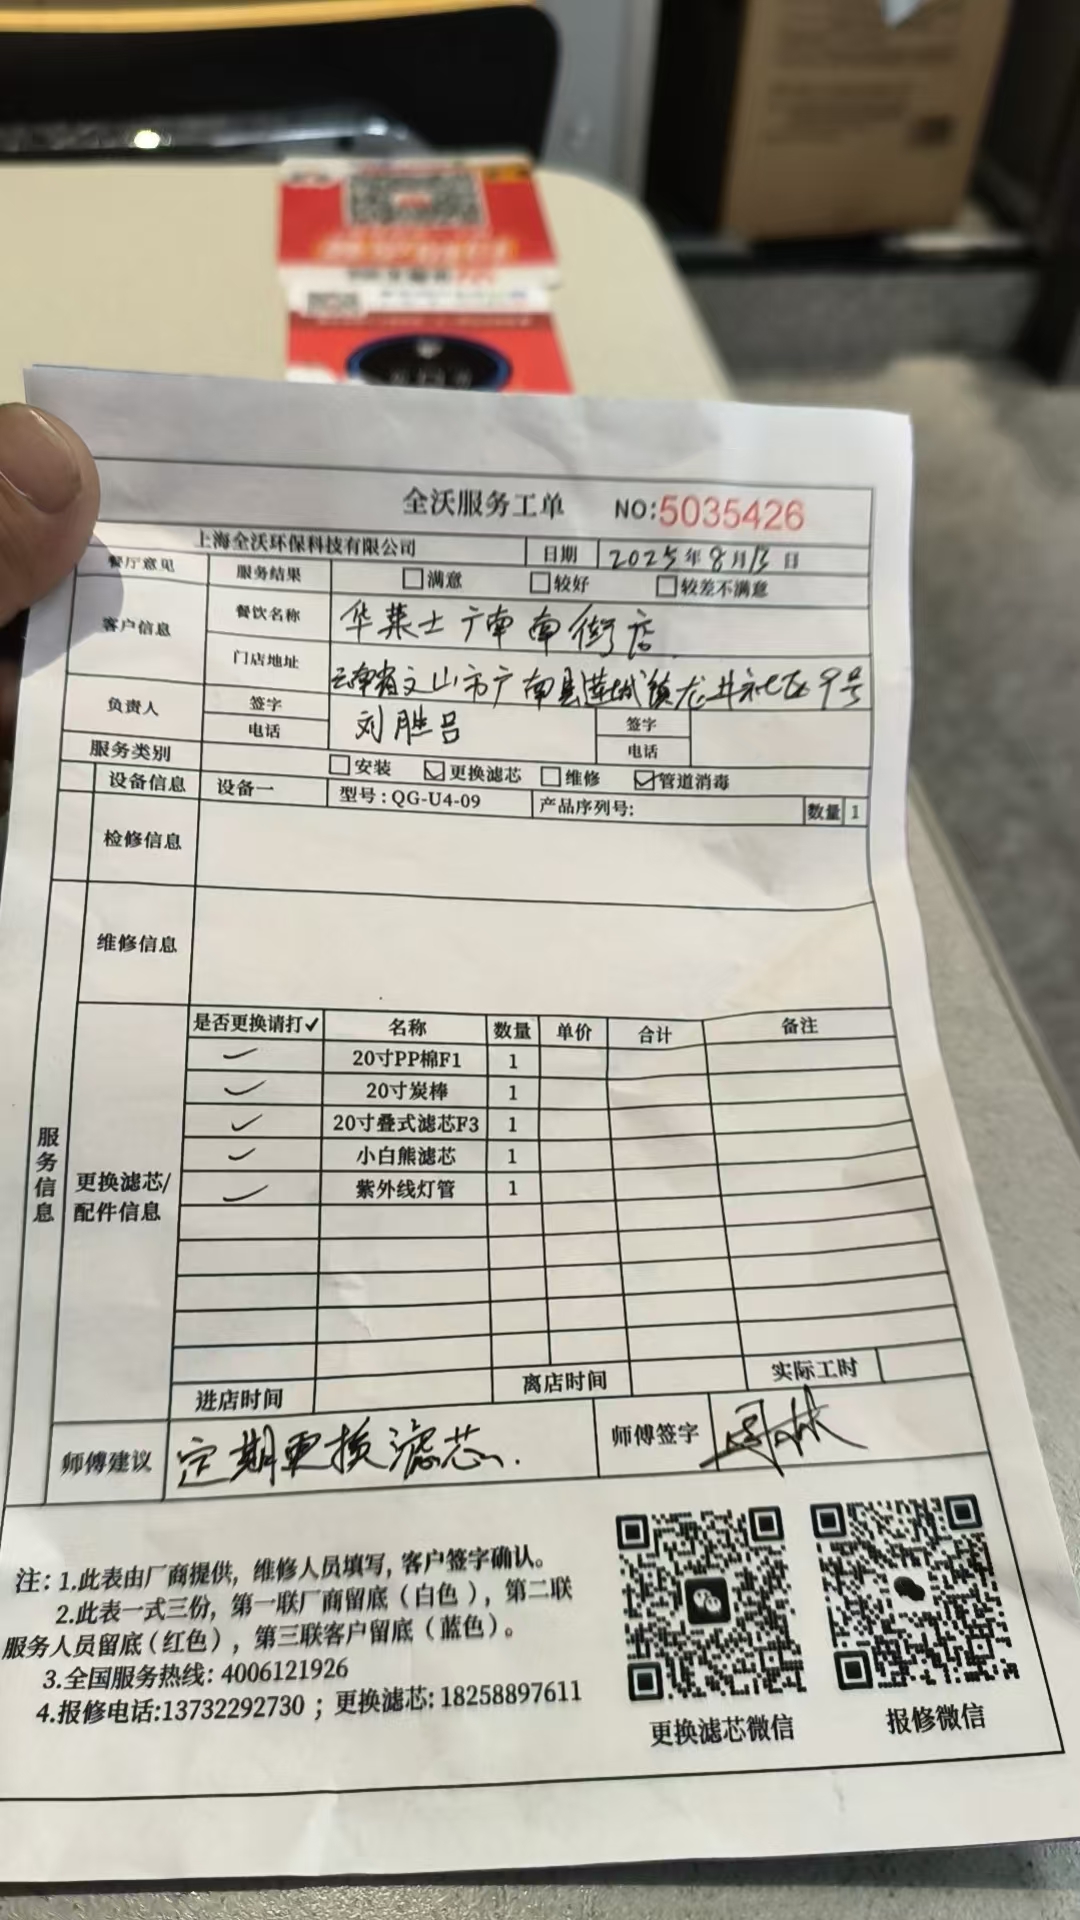 全沃服务工单 NO:5035426
上海全沃环保科技有限公司 日期 2025年8月13日
餐厅意见 服务结果 满意 较好 较差不满意
客户信息 餐饮名称 华莱士广南南街店
门店地址 云南省文山市广南县莲城镇龙井社区9号
负责人 签字 刘胜吕 签字
电话 电话
服务类别 安装 ✓更换滤芯 维修 ✓管道消毒
设备信息 设备一 型号:QG-U4-09 产品序列号: 数量 1
检修信息
维修信息
服务信息
更换滤芯/
配件信息
是否更换请打✓ 名称 数量 单价 合计 备注
✓ 20寸PP棉F1 1
✓ 20寸炭棒 1
✓ 20寸叠式滤芯F3 1
✓ 小白熊滤芯 1
✓ 紫外线灯管 1
进店时间 离店时间 实际工时
师傅建议 定期更换滤芯. 师傅签字
注: 1.此表由厂商提供, 维修人员填写, 客户签字确认。
2.此表一式三份, 第一联厂商留底(白色), 第二联
服务人员留底(红色), 第三联客户留底(蓝色)。
3.全国服务热线: 4006121926
4.报修电话:13732292730 ; 更换滤芯: 18258897611
更换滤芯微信 报修微信